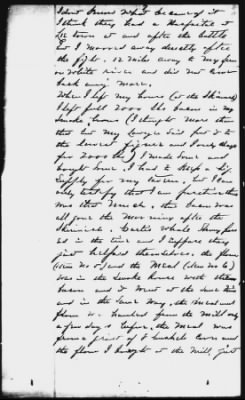 I don't know what became of it
I think they had a Hospital it
town at and after the battle
but I moved away directly after
the fight. 12 miles away to my farm
on White river and did not ever
back any more.
When I left my home (at the Skirmish)
I left full 2000 lbs Bacon in my
Smoke house (I thought more than
that but my Lawyer
the lowest figure and I only
for 2000 lbs) I made some and
bought some I had to keep a big
supply for my but I can
only certify that I am
was that much, this Bacon was
all gone the morning after the
Skirmish. Curtis' whole Army
in the time and I suppose they
just helped themselves. the flour
(Item No 5) and the Meal (Item No 6)
was in the smoke house with the
Bacon and it went at the same time
and in the same way, the Meal and
flour was hauled from the Mill only
a few days before, the Meal was
from a grist of bushels corn and
the flour I bought at the Mill, just